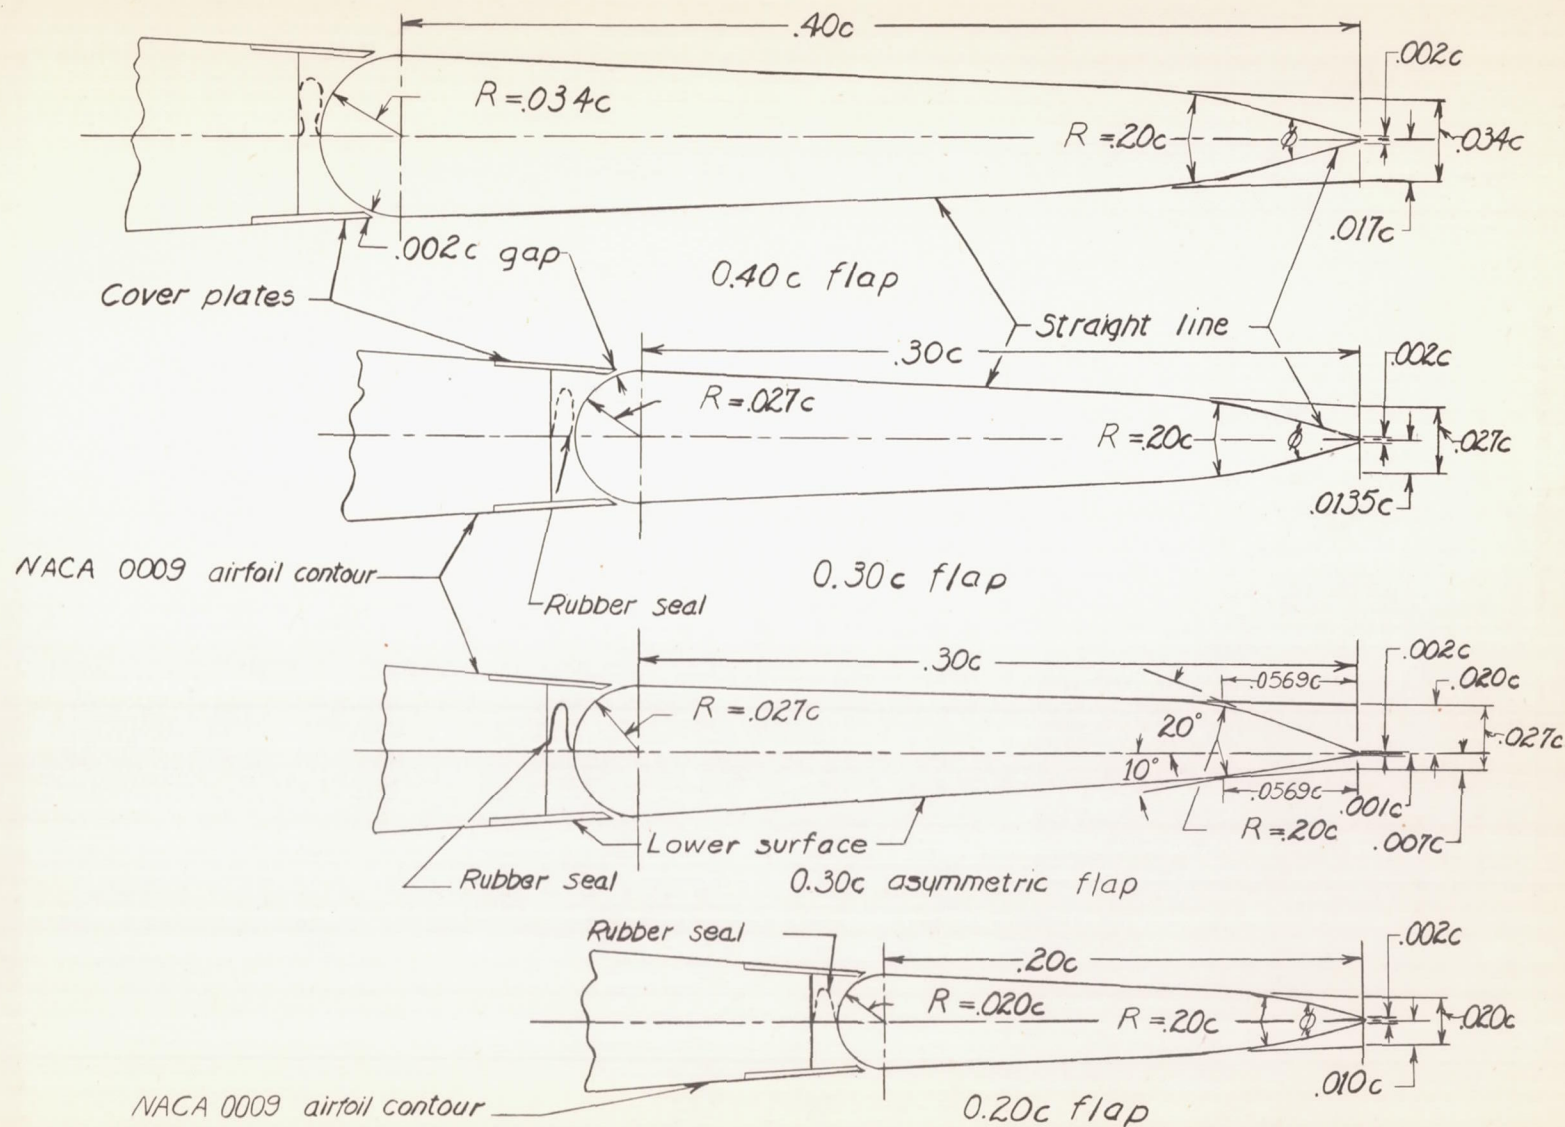 .40c
.002c
R=.034c
R=.20c
ϕ
.034c
.017c
.002c gap
0.40c flap
Cover plates
Straight line
.30c
.002c
R=.027c
R=.20c
ϕ
.027c
.0135c
NACA 0009 airfoil contour
0.30c flap
Rubber seal
.30c
.002c
.0569c
.020c
R=.027c
20°
.027c
10°
.0569c
.001c
R=.20c
.007c
Lower surface
Rubber seal
0.30c asymmetric flap
Rubber seal
.002c
.20c
R=.020c
R=.20c
ϕ
.020c
.010c
NACA 0009 airfoil contour
0.20c flap